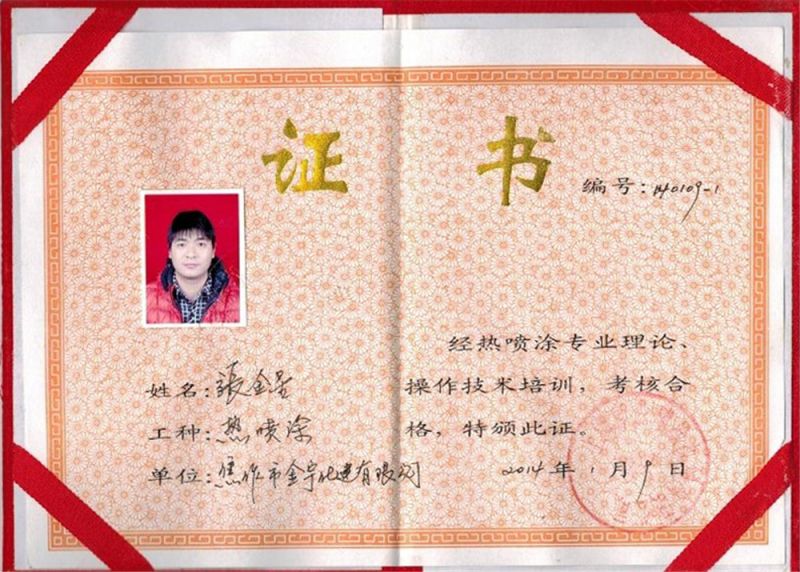 证 书
编号:140109-1
经热喷涂专业理论、
操作技术培训，考核合
格，特颁此证。
2014年1月9日
姓名:張金星
工种:热喷涂
单位:焦作市金宇化建有限公司